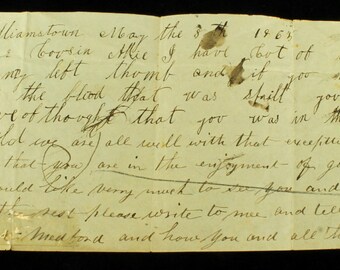 lliamstown May the 8th 186
Cousin Alice I have Cot of
my left thumb and if you
the flood that was spilt you
ve of thought that you was in th
ld we are all well with that exceptio
that you are in the enjoyment of go
ould like very much to see you and
the rest please write to mee and tell
Medford and how you and all th